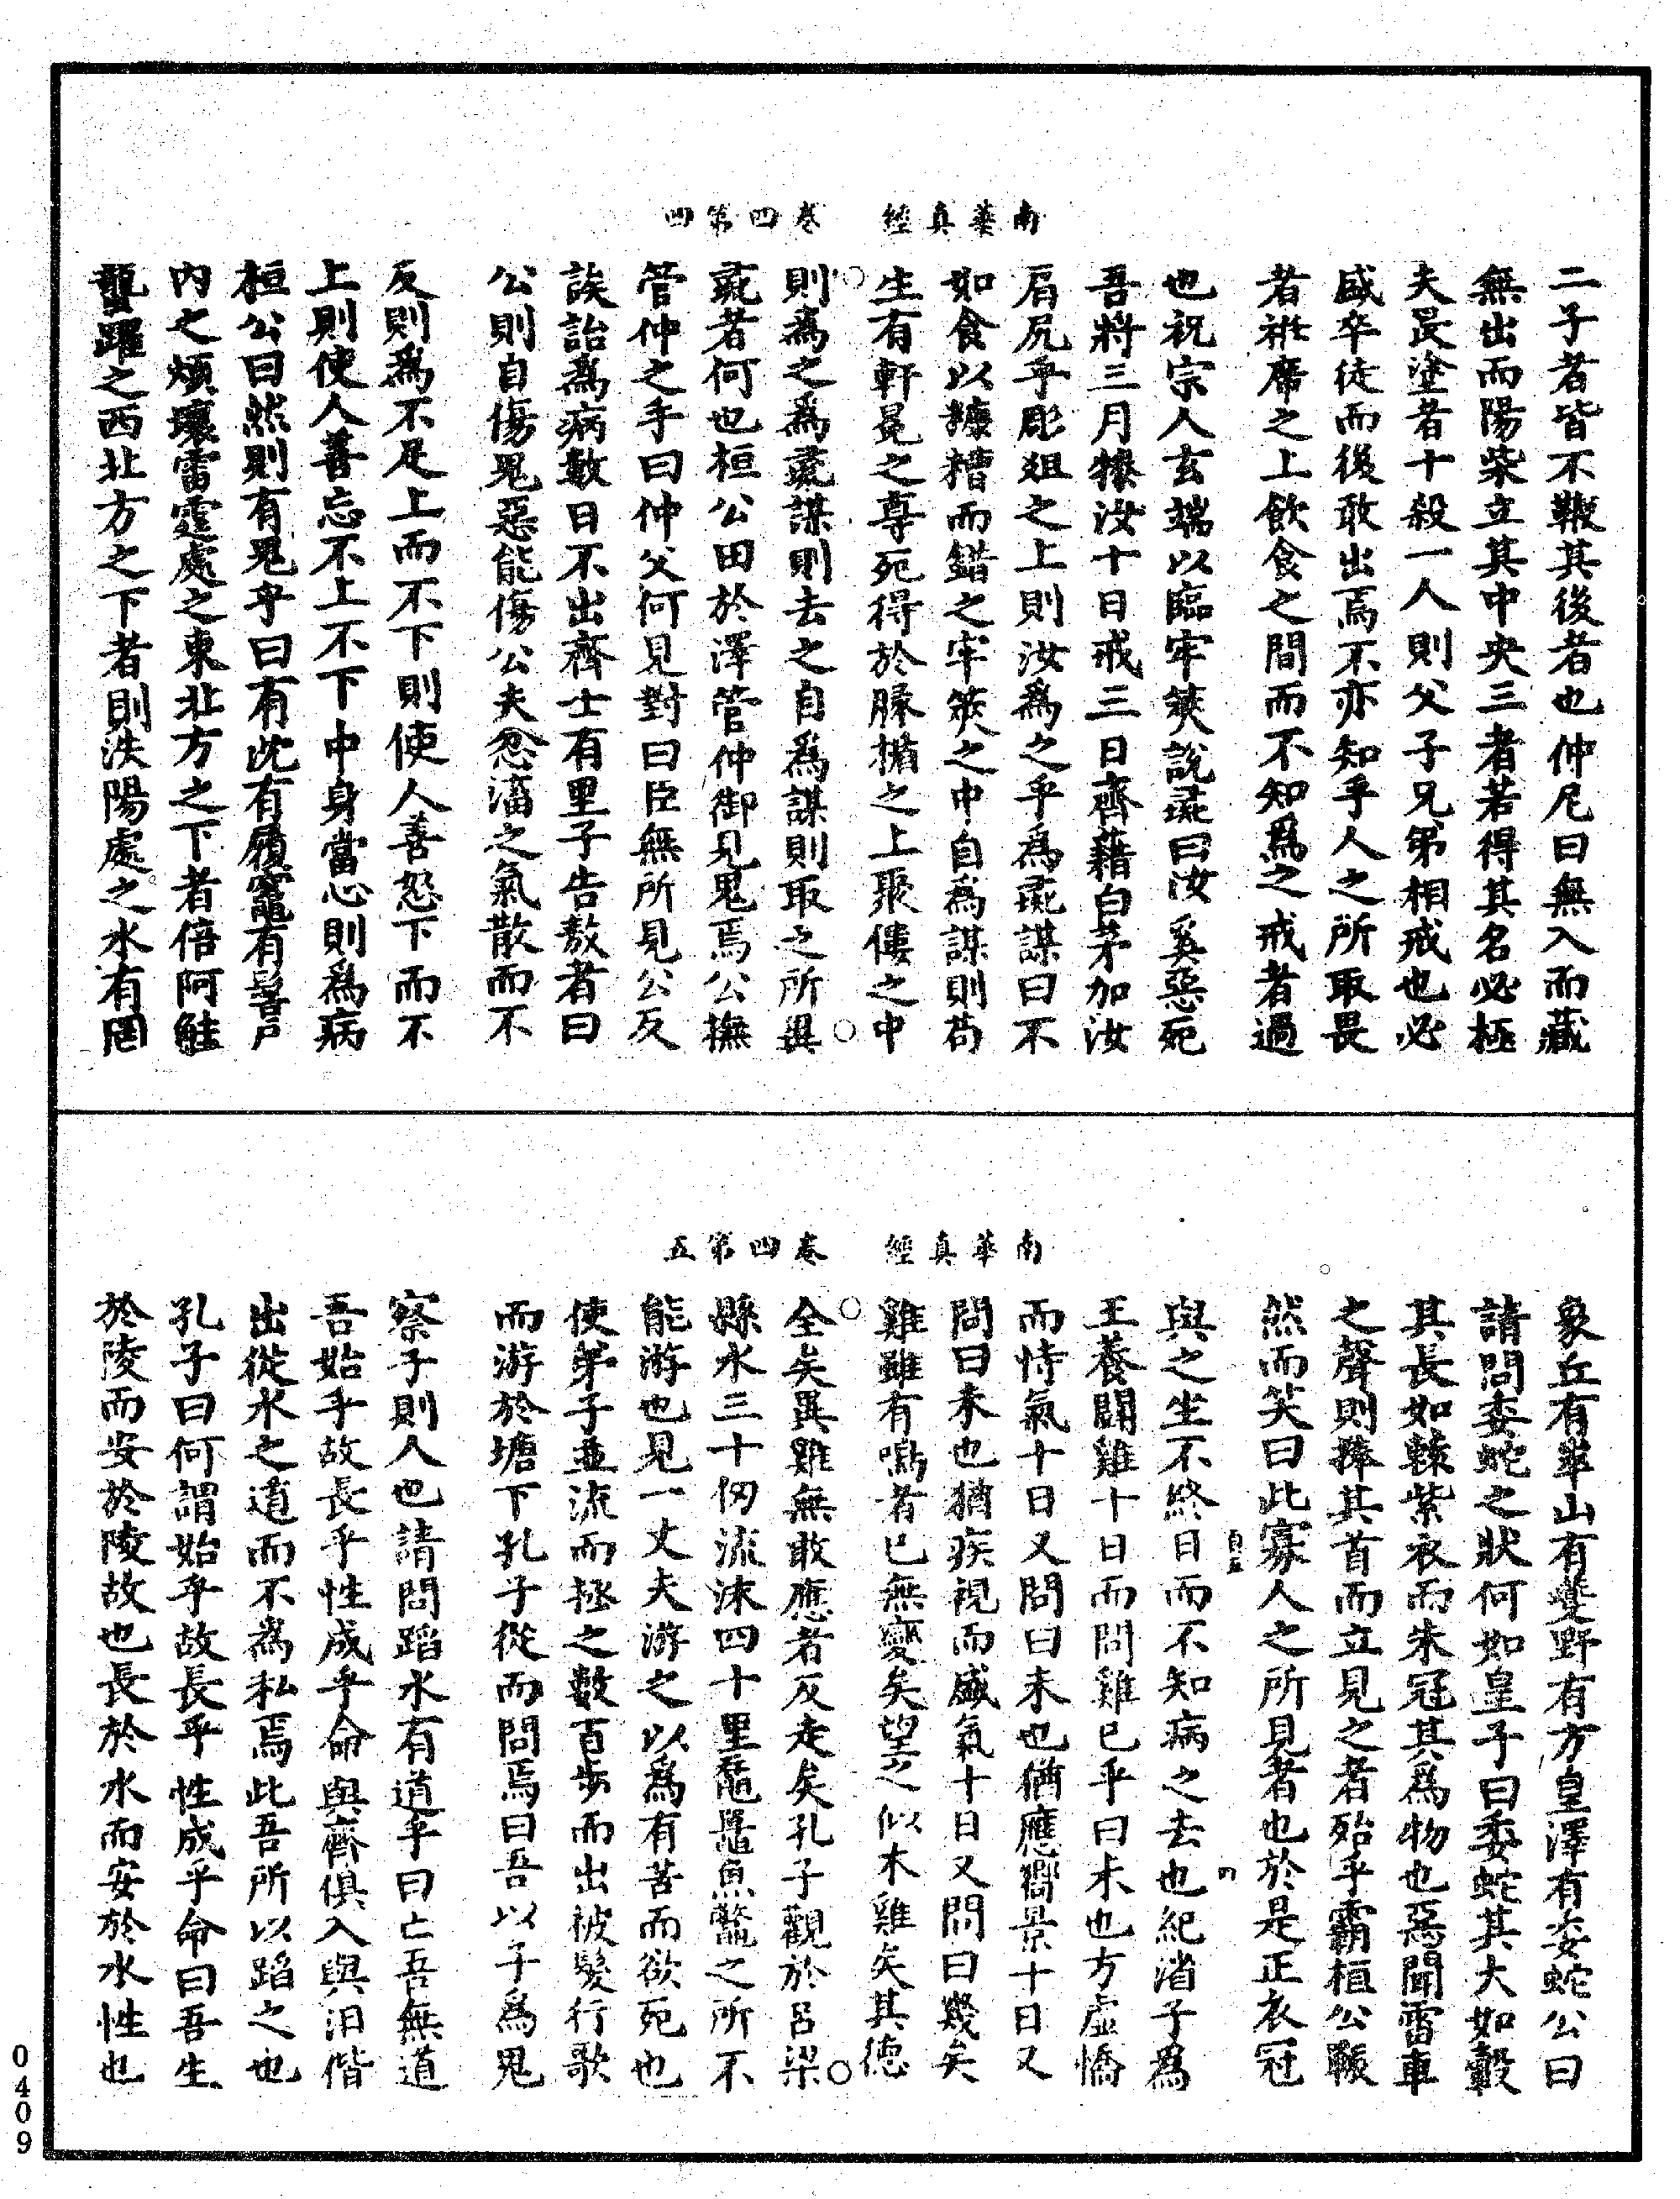 南華真經　卷四第四
二子者皆不鞭其後者也仲尼曰無入而藏
無出而陽柴立其中央三者若得其名必極
夫畏塗者十殺一人則父子兄弟相戒也必
盛卒徒而後敢出焉不亦知乎人之所取畏
者袵席之上飲食之間而不知為之戒者過
也祝宗人玄端以臨牢筴說彘曰汝奚惡死
吾將三月㹖汝十日戒三日齊藉白茅加汝
肩尻乎彫俎之上則汝為之乎為彘謀曰不
如食以糠糟而錯之牢筴之中自為謀則苟
生有軒冕之尊死得於腞楯之上聚僂之中
則為之為彘謀則去之自為謀則取之所異
彘者何也桓公田於澤管仲御見鬼焉公撫
管仲之手曰仲父何見對曰臣無所見公反
誒詒為病數日不出齊士有皇子告敖者曰
公則自傷鬼惡能傷公夫忿滀之氣散而不
反則為不足上而不下則使人善怒下而不
上則使人善忘不上不下中身當心則為病
桓公曰然則有鬼乎曰有沈有履竈有髻戶
內之煩壤雷霆處之東北方之下者倍阿鮭
蠪躍之西北方之下者則泆陽處之水有罔
南華真經　卷四第五
象丘有峷山有夔野有方皇澤有委蛇公曰
請問委蛇之狀何如皇子曰委蛇其大如轂
其長如轅紫衣而朱冠其為物也惡聞雷車
之聲則捧其首而立見之者殆乎霸桓公辴
然而笑曰此寡人之所見者也於是正衣冠
與之坐不終日而不知病之去也紀渻子為
王養鬭雞十日而問雞已乎曰未也方虛憍
而恃氣十日又問曰未也猶應嚮景十日又
問曰未也猶疾視而盛氣十日又問曰幾矣
雞雖有鳴者已無變矣望之似木雞矣其德
全矣異雞無敢應者反走矣孔子觀於呂梁
縣水三十仞流沫四十里黿鼉魚鼈之所不
能游也見一丈夫游之以為有苦而欲死也
使弟子並流而拯之數百步而出被髮行歌
而游於塘下孔子從而問焉曰吾以子為鬼
察子則人也請問蹈水有道乎曰亡吾無道
吾始乎故長乎性成乎命與齊俱入與汨偕
出從水之道而不為私焉此吾所以蹈之也
孔子曰何謂始乎故長乎性成乎命曰吾生
於陵而安於陵故也長於水而安於水性也
0409